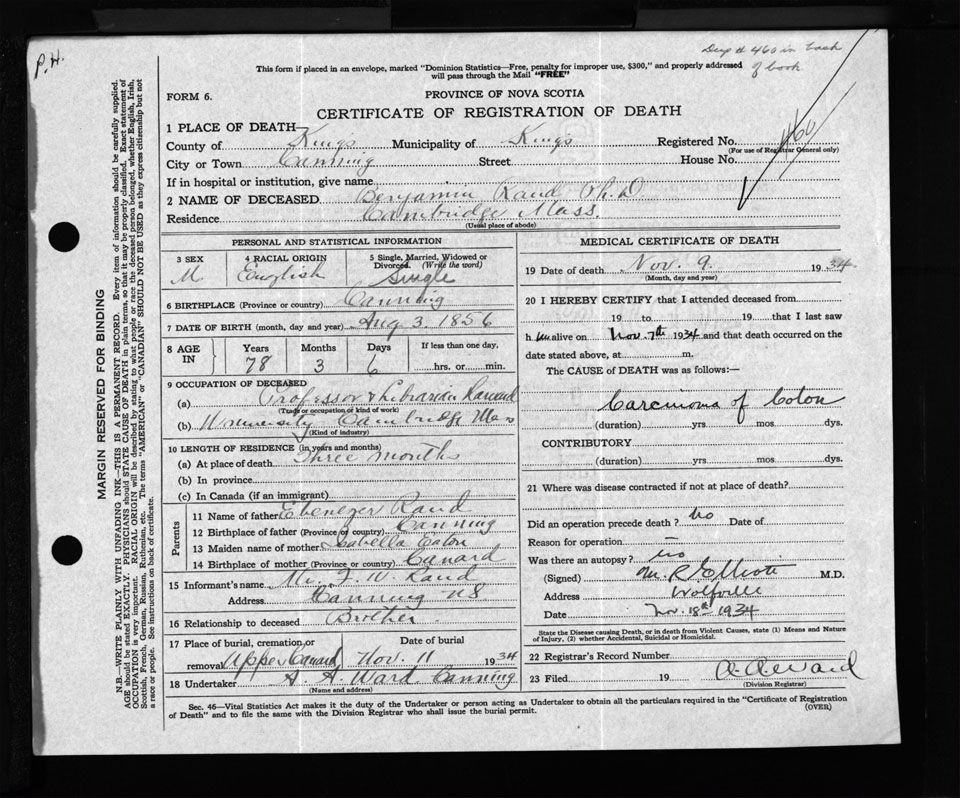 P.H.
Dup # 460 in back
of book
This form if placed in an envelope, marked "Dominion Statistics—Free, penalty for improper use, $300," and properly addressed
will pass through the Mail "FREE"
FORM 6.
PROVINCE OF NOVA SCOTIA
CERTIFICATE OF REGISTRATION OF DEATH
1 PLACE OF DEATH
County of Kings Municipality of Kings Registered No. 460
(For use of Registrar General only)
City or Town Canning Street House No.
If in hospital or institution, give name
2 NAME OF DECEASED Benjamin Rand Ph.D
Residence Cambridge Mass.
(Usual place of abode)
PERSONAL AND STATISTICAL PARTICULARS
3 SEX 4 RACIAL ORIGIN 5 Single, Married, Widowed or
Divorced. (Write the word)
M English Single
6 BIRTHPLACE (Province or country) Canning
7 DATE OF BIRTH (month, day and year) Aug 3. 1856
8 AGE IN Years Months Days If less than one day,
78 3 6 hrs. or min.
9 OCCUPATION OF DECEASED
(a) Professor & Librarian Harvard
(Trade or occupation or kind of work)
(b) University Cambridge Mass
(Kind of industry)
10 LENGTH OF RESIDENCE (in years and months)
(a) At place of death Three months
(b) In province
(c) In Canada (if an immigrant)
Parents
11 Name of father Ebenezer Rand
12 Birthplace of father (Province or country) Canning
13 Maiden name of mother Isabella Eaton
14 Birthplace of mother (Province or country) Canard
15 Informant's name Mr. F. W. Rand
Address Canning NS
16 Relationship to deceased Brother
17 Place of burial, cremation or Date of burial
removal Upper Canard Nov. 11 1934
18 Undertaker A. A. Ward Canning
(Name and address)
MEDICAL CERTIFICATE OF DEATH
19 Date of death Nov. 9. 1934
(Month, day and year)
20 I HEREBY CERTIFY that I attended deceased from
19 to 19 that I last saw
h im alive on Nov. 7th 1934 and that death occurred on the
date stated above, at m.
The CAUSE of DEATH was as follows:—
Carcinoma of Colon
(duration) yrs mos dys.
CONTRIBUTORY
(duration) yrs mos dys.
21 Where was disease contracted if not at place of death?
Did an operation precede death? No Date of
Reason for operation
Was there an autopsy? no
(Signed) M. R. Elliott M.D.
Address Wolfville
Date Nov. 18th 1934
State the Disease causing Death, or in death from Violent Causes, state (1) Means and Nature
of Injury, (2) whether Accidental, Suicidal or Homicidal.
22 Registrar's Record Number
23 Filed 19
(Division Registrar)
Sec. 46—Vital Statistics Act makes it the duty of the Undertaker or person acting as Undertaker to obtain all the particulars required in the "Certificate of Registration
of Death" and to file the same with the Division Registrar who shall issue the burial permit.
(OVER)
MARGIN RESERVED FOR BINDING
N.B.—WRITE PLAINLY WITH UNFADING INK—THIS IS A PERMANENT RECORD. Every item of information should be carefully supplied.
AGE should be stated EXACTLY. PHYSICIANS should STATE CAUSE OF DEATH in plain terms, so that it may be properly classified. Exact statement of
OCCUPATION is very important. RACIAL ORIGIN will be described by stating to what people or race the deceased person belonged, whether English, Irish,
Scottish, French, German, Russian, Ruthenian, etc. The terms "AMERICAN" or "CANADIAN" SHOULD NOT BE USED as they express citizenship but not
a race or people. See instructions on back of certificate.